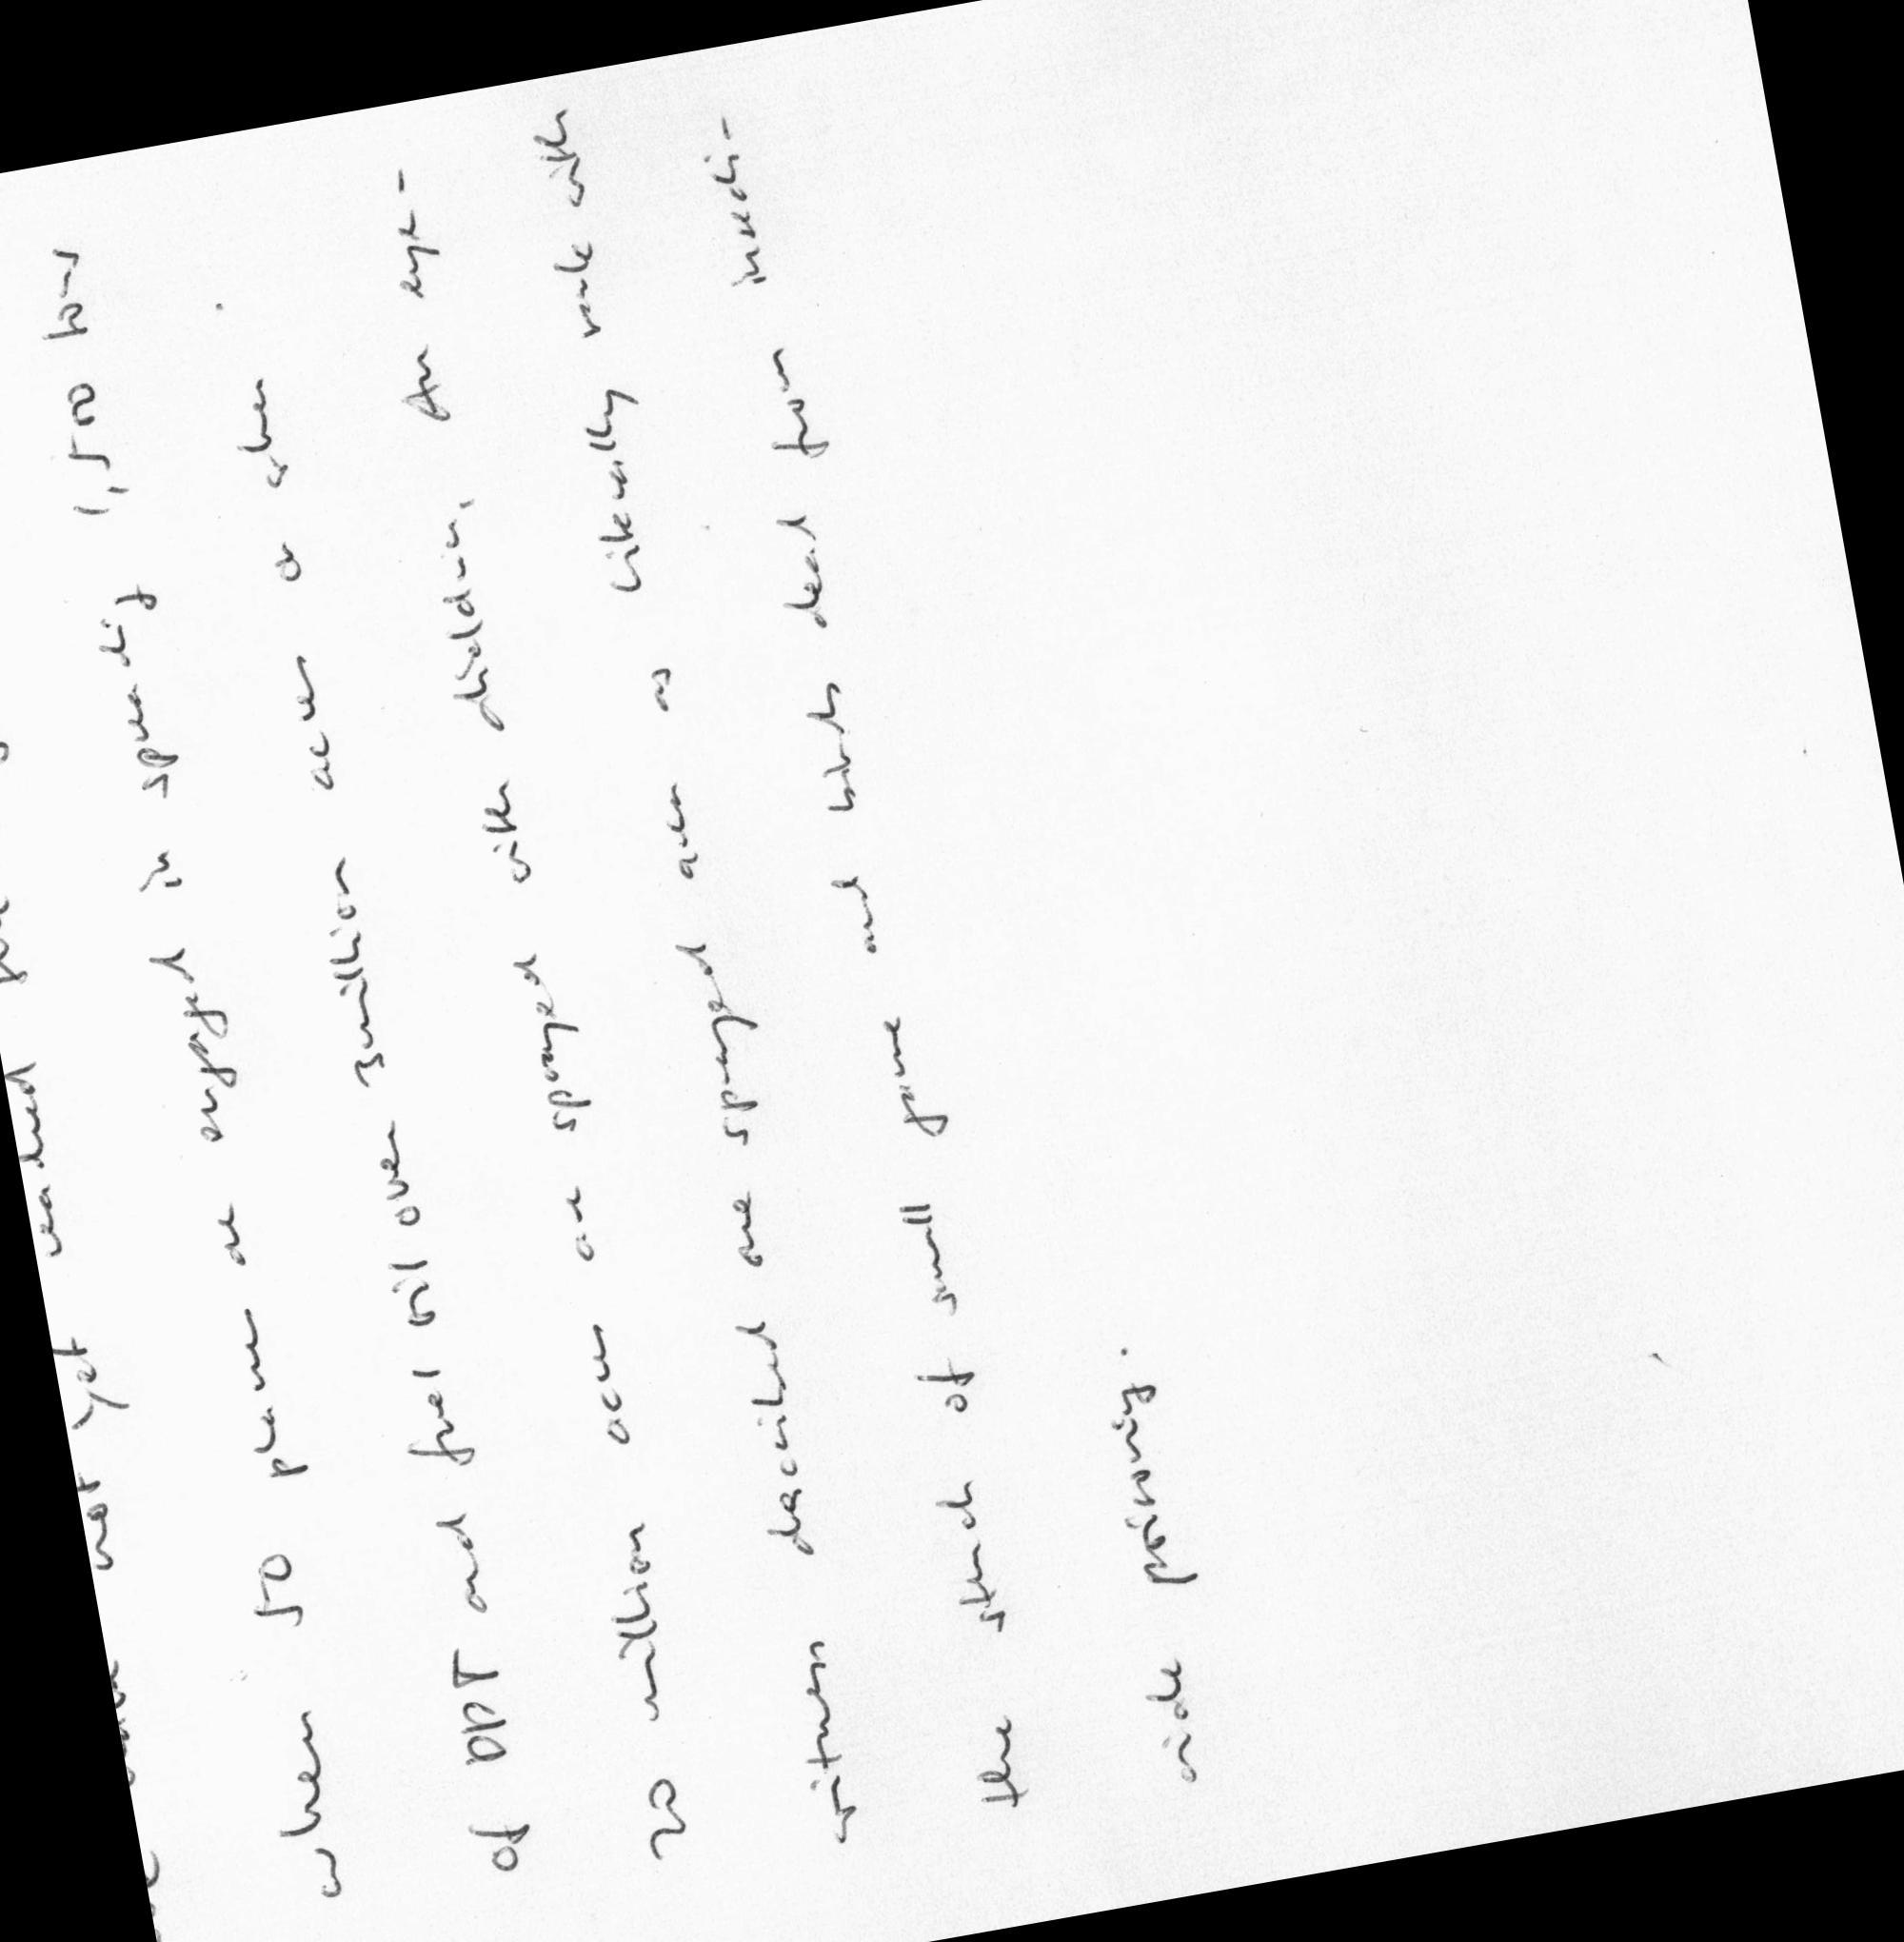 not yet reached
when 50 planes are engaged in spreading 1,500 tons
of DDT and fuel oil over 3 million acres or when
20 million acres are sprayed with dieldrin. An eye-
witness described one sprayed area as literally rank with
the stench of small game and birds dead from insecti-
cide poisoning.